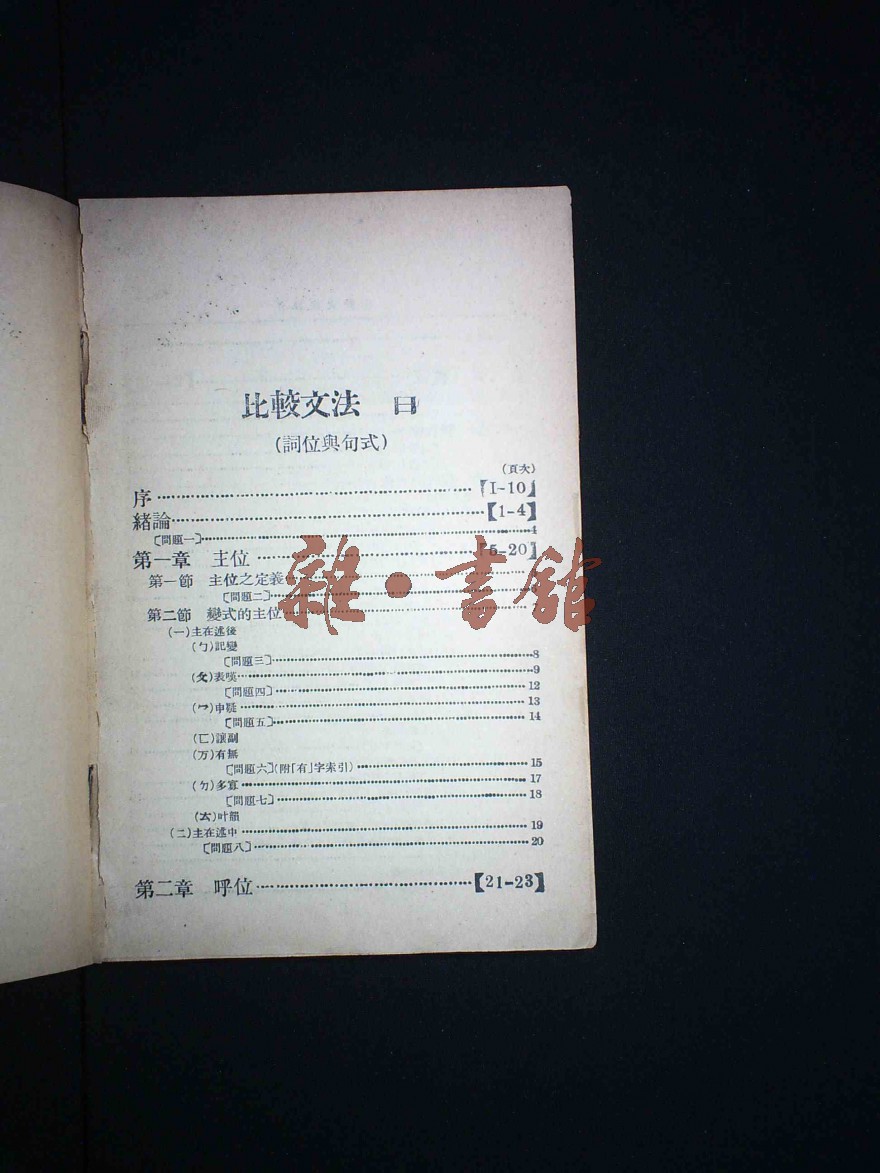 比較文法 目
(詞位與句式)
(頁次)
序【I-10】
緒論【1-4】
〔問題一〕4
第一章 主位【5-20】
第一節 主位之定義
〔問題二〕
第二節 變式的主位
(一)主在述後
(ㄅ)記變
〔問題三〕8
(ㄆ)表嘆9
〔問題四〕12
(ㄇ)申疑13
〔問題五〕14
(ㄈ)讓副
(万)有無
〔問題六〕(附「有」字索引)15
(ㄉ)多寡17
〔問題七〕18
(ㄊ)叶韻
(二)主在述中19
〔問題八〕20
第二章 呼位【21-23】
雜·書館